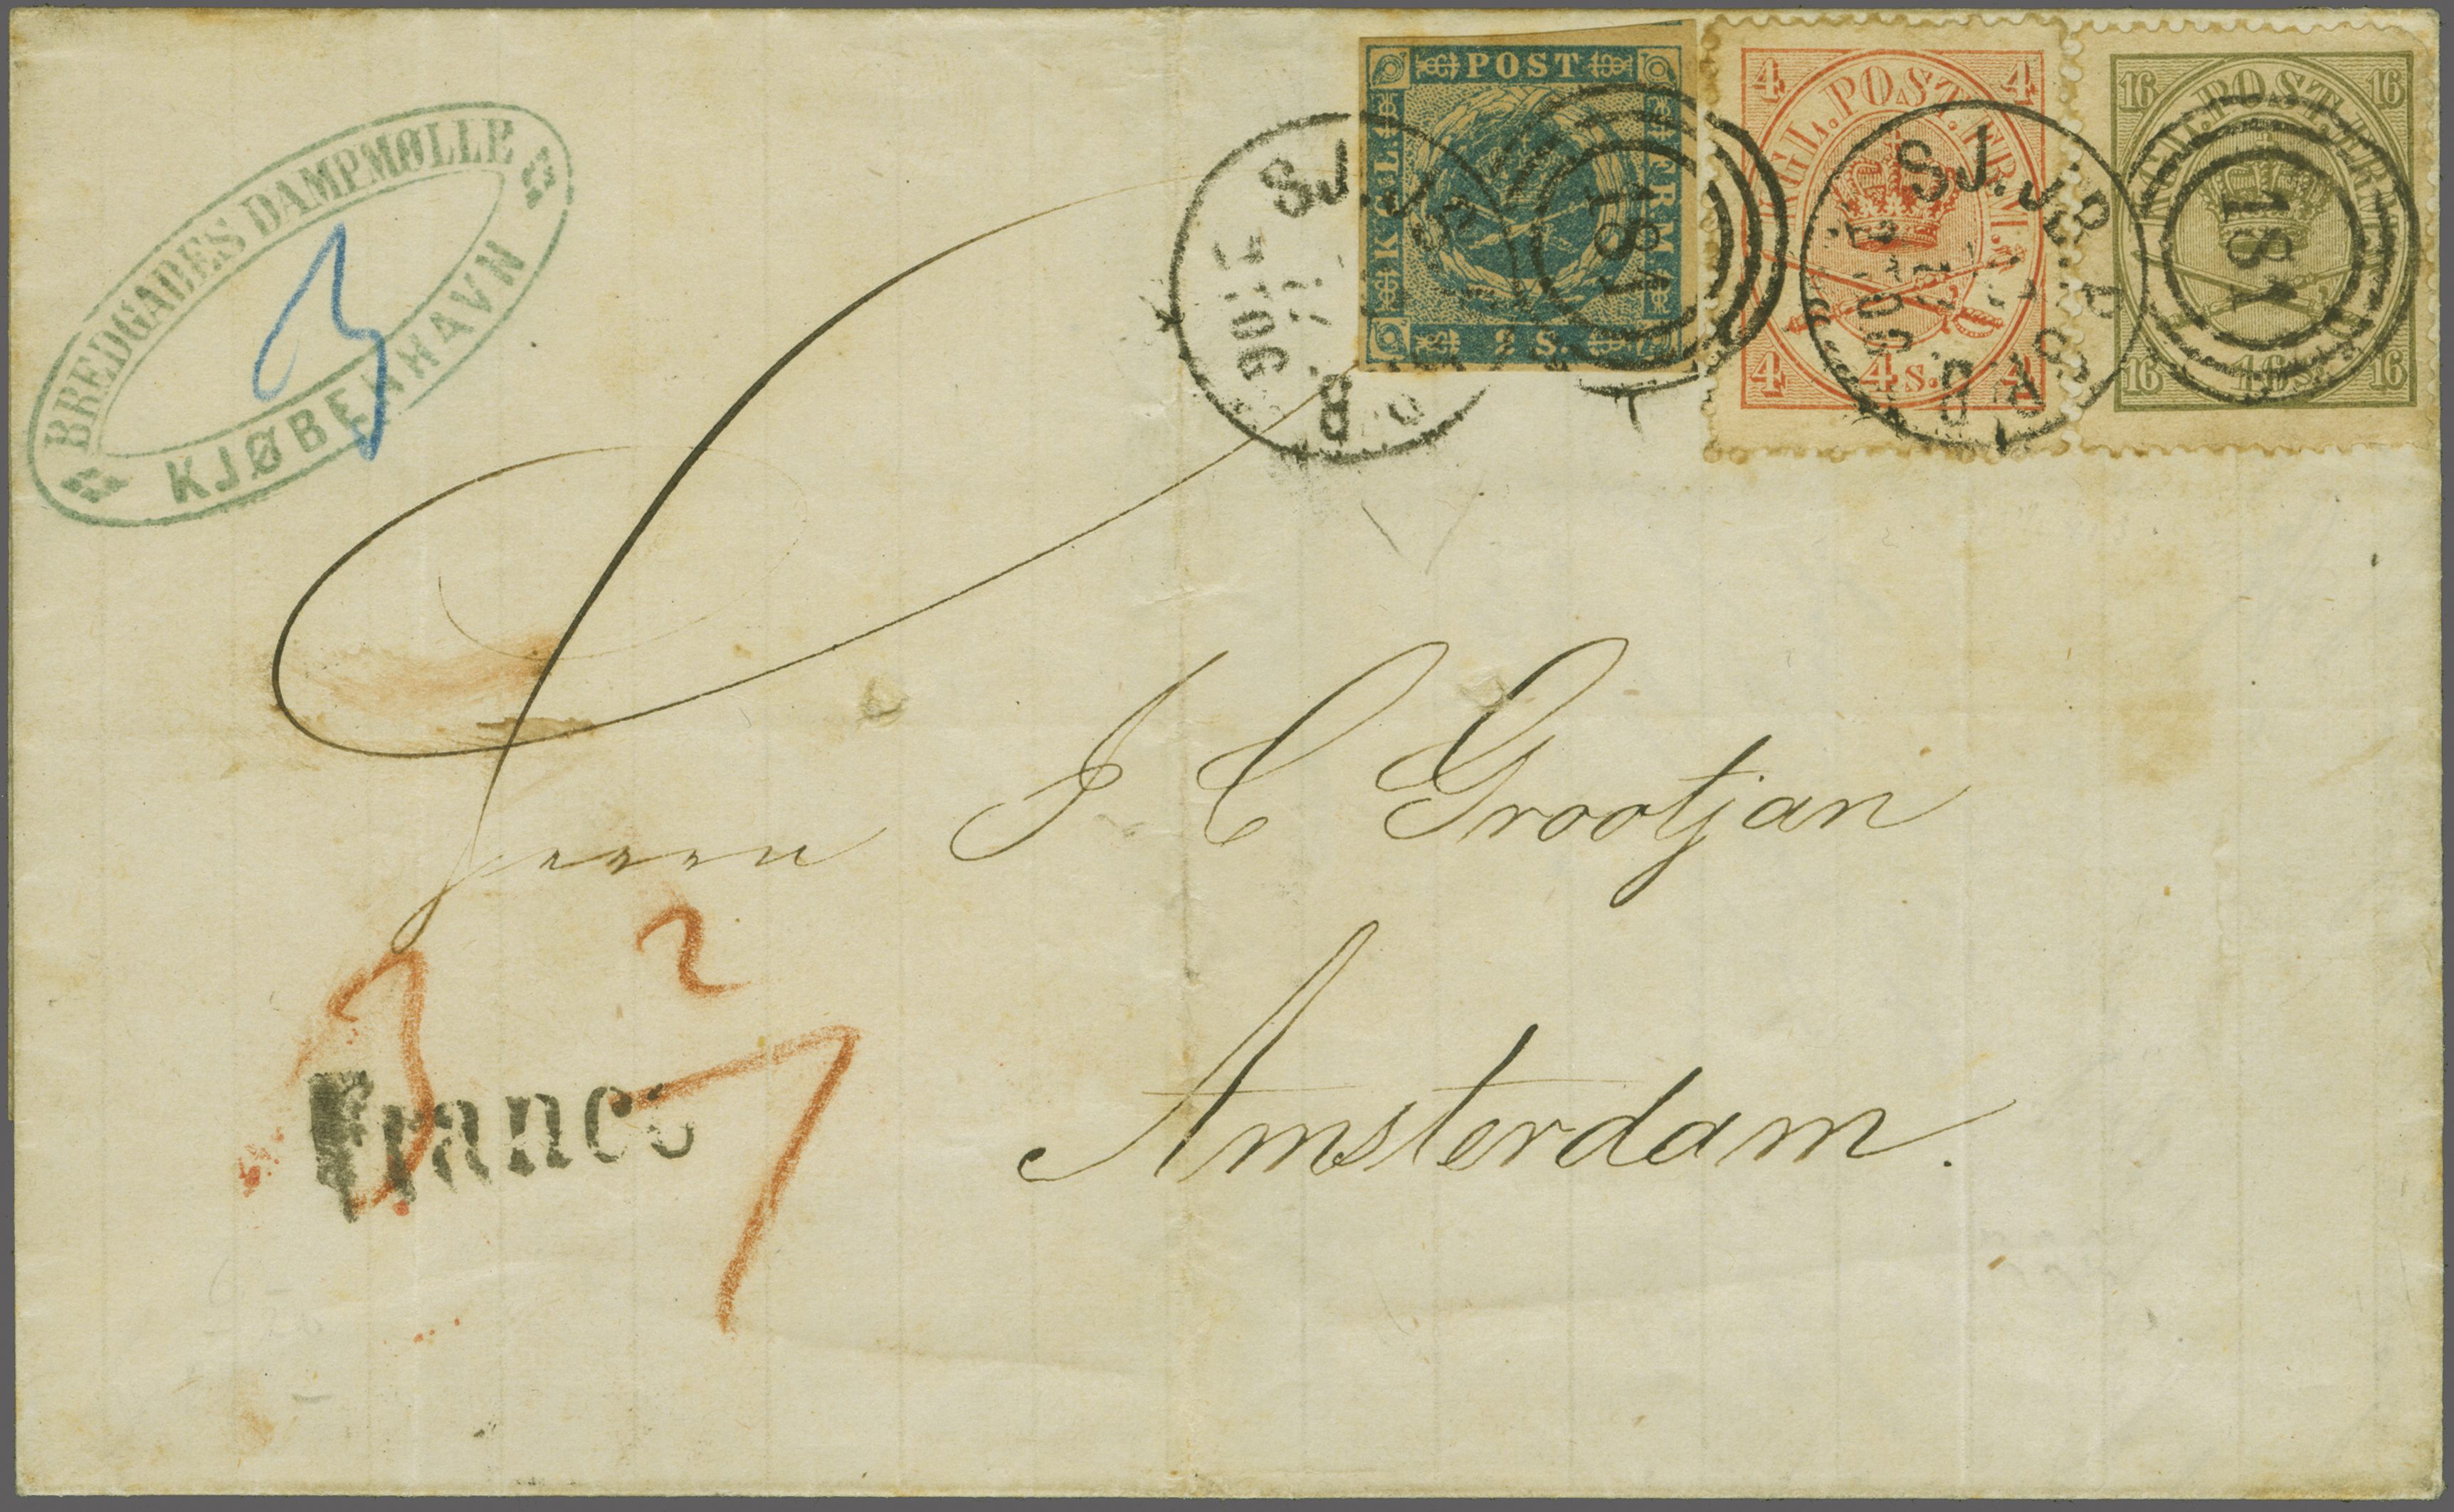 BREDGADES DAMPMØLLE
KJØBENHAVN
3
POST
K.G.L.
FRM.
2 S.
181
4 4
KGL. POST. FRM.
4 4 S. 4
SJ. J.B.P.SP.B.
16 16
KGL. POST. FRM.
16 16 S. 16
181
SJ. J.B.
Herrn J C Grootjan
Amsterdam.
2
3
7
Franco